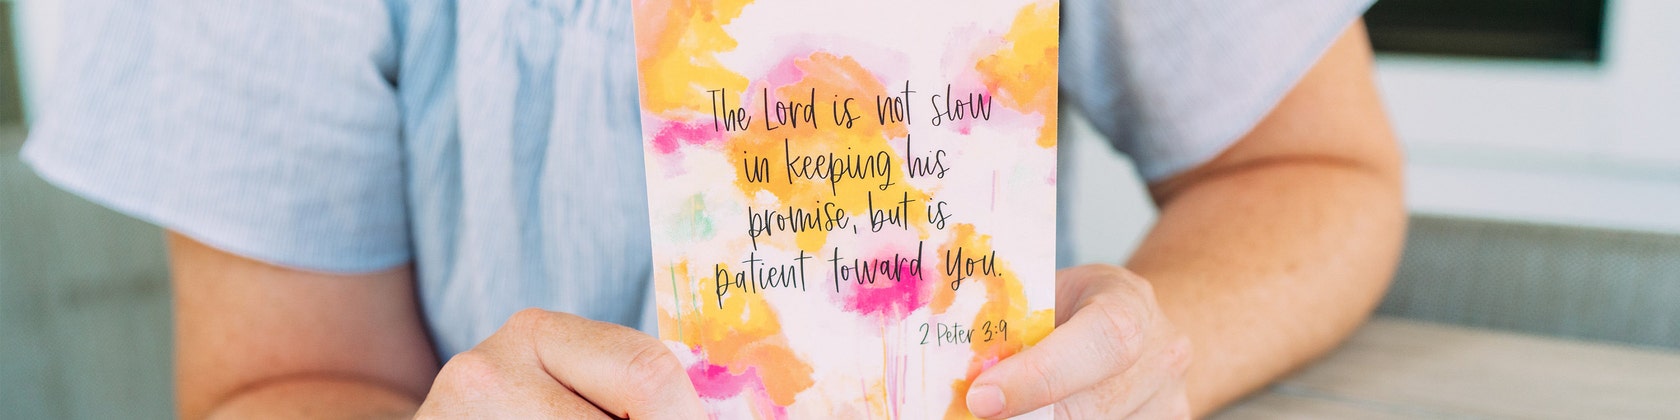 The Lord is not slow
in keeping his
promise, but is
patient toward you.
2 Peter 3:9